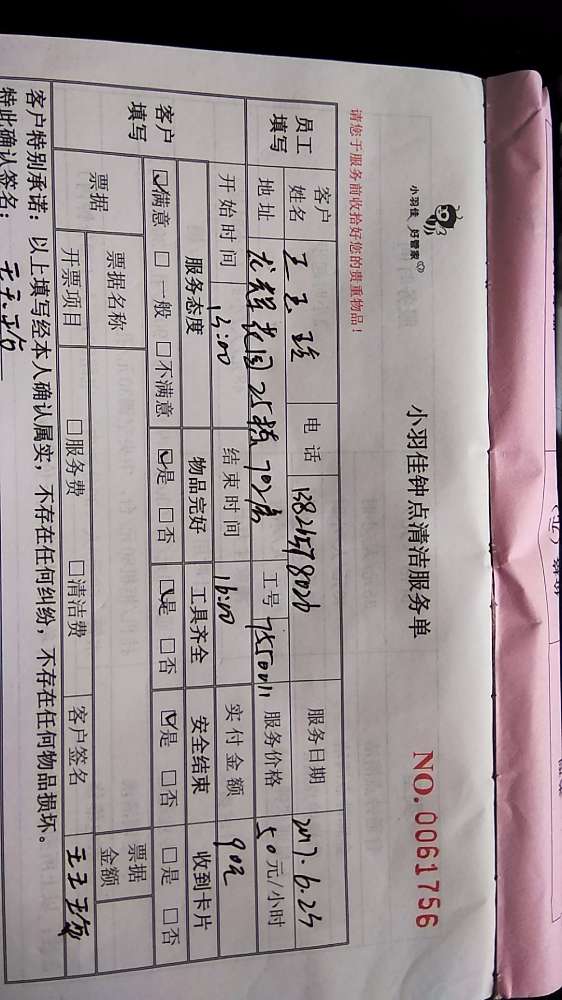 小羽佳 好管家
小羽佳钟点清洁服务单
NO. 0061756
请您于服务前收拾好您的贵重物品！
员工填写 客户姓名 王玉珍 电话 服务日期 2017.6.25
地址 龙辉花园25栋702房 工号 服务价格 50元/小时
开始时间 13:00 结束时间 16:00 实付金额 90元
客户填写 服务态度 物品完好 工具齐全 安全结束 收到卡片
☑满意 □一般 □不满意 ☑是 □否 ☑是 □否 ☑是 □否 □是 □否
票据 票据名称 票据金额
开票项目 □服务费 □清洁费 客户签名
客户特别承诺：以上填写经本人确认属实，不存在任何纠纷，不存在任何物品损坏。
特此确认签名：